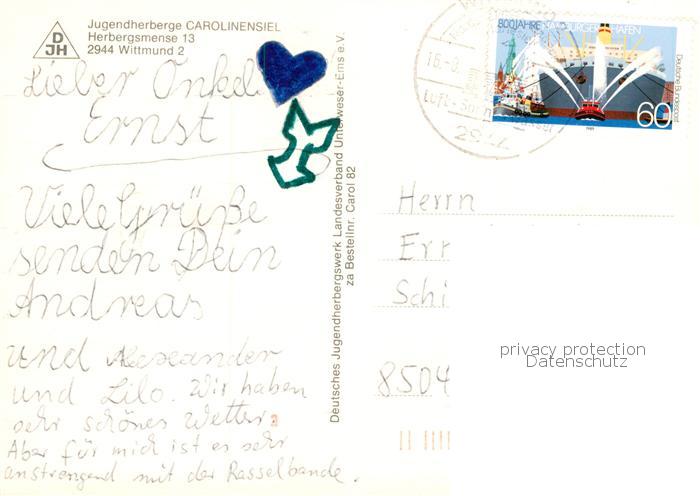 D
JH
Jugendherberge CAROLINENSIEL
Herbergsmense 13
2944 Wittmund 2
Lieber Onkel
Ernst
Viele Grüße
senden Dein
Andreas
und Alexander
und Lilo. Wir haben
sehr schönes Wetter.
Aber für mich ist es sehr
anstrengend mit der Rasselbande.
Deutsches Jugendherbergswerk Landesverband Unterweser-Ems e.V.
za Bestellnr. Carol 82
16.-8.
2944
800 JAHRE HAMBURGER HAFEN
Deutsche Bundespost
60
1989
Herrn
Err
Schi
8504
privacy protection
Datenschutz